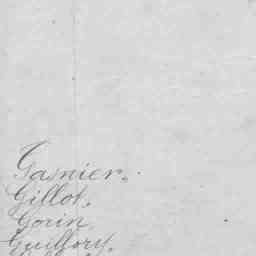 Garnier.
Gillot.
Gorin.
Guillory.